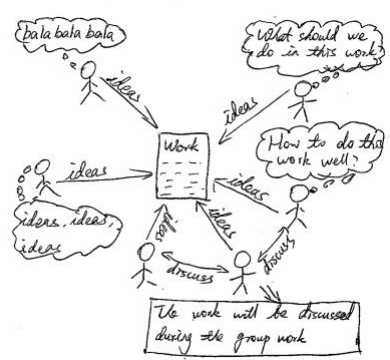 bala bala bala
What should we
do in this work?
ideas
ideas
Work
How to do this
work well?
ideas
ideas
ideas, ideas,
ideas
ideas
ideas
discuss
discuss
work will be discussed
during the group work